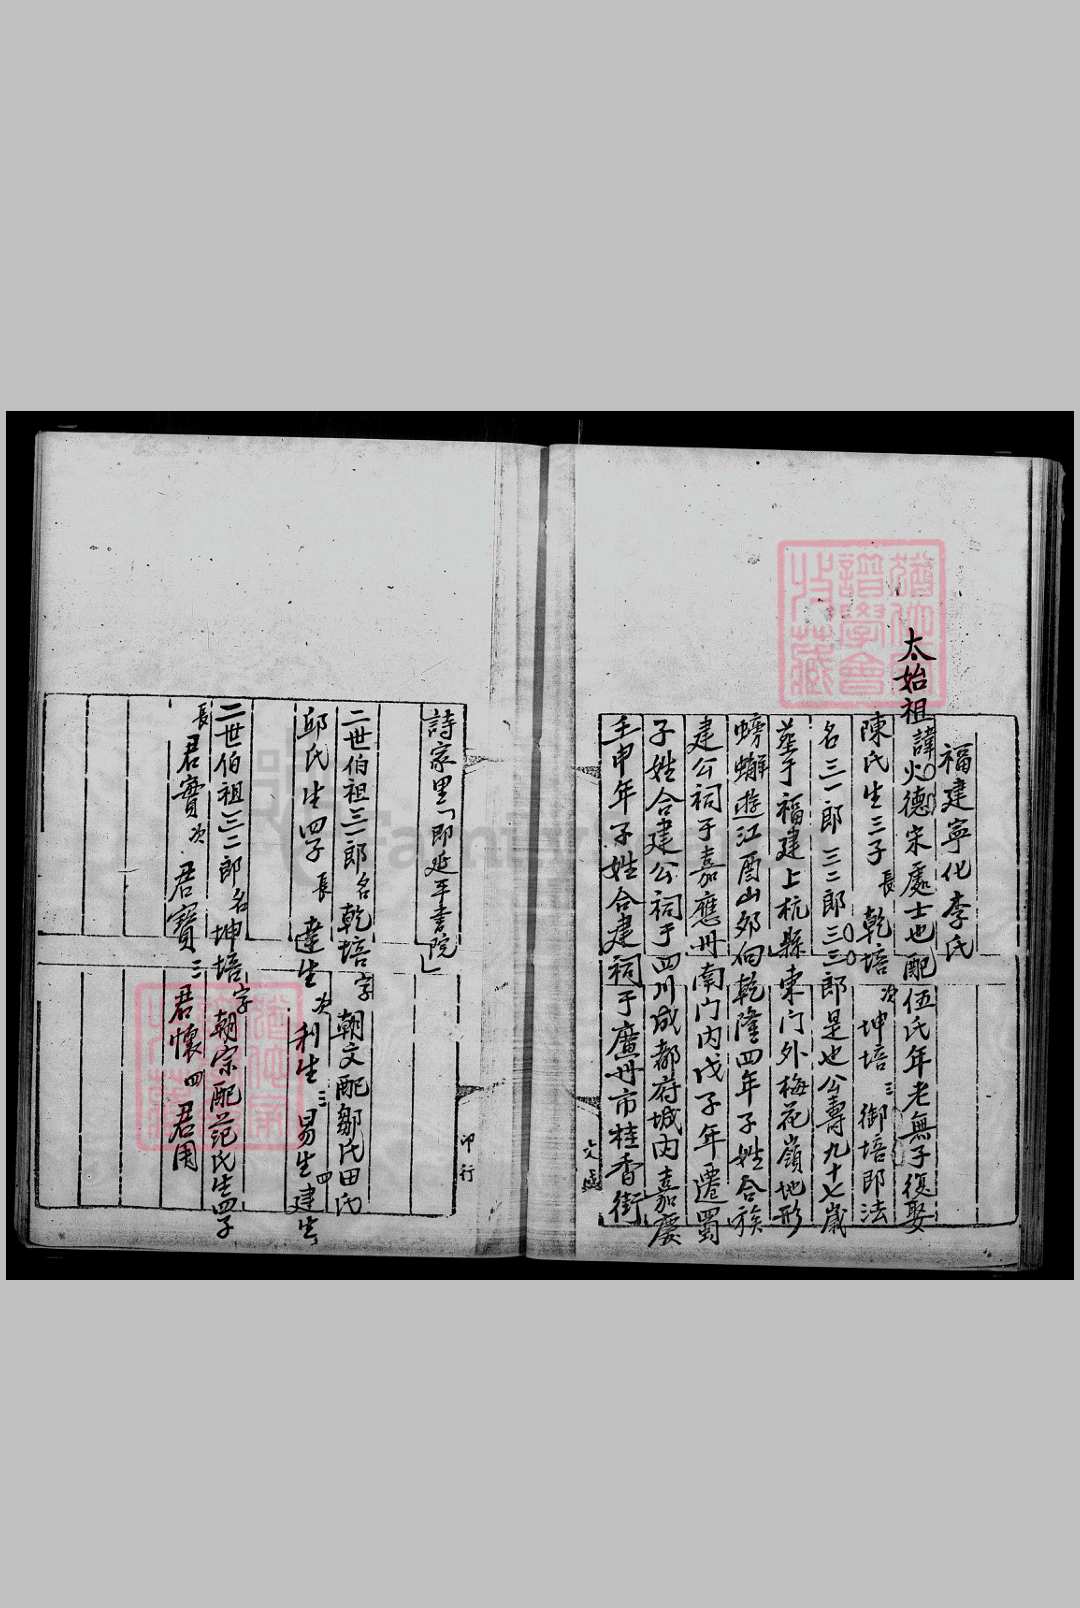 福建寧化李氏
太始祖諱火德宋處士也配伍氏年老無子復娶
陳氏生三子長乾培次坤培三御培即法
名三一郎三二郎三三郎是也公壽九十七歲
葬于福建上杭縣東門外梅花嶺地形
螃蠏遊江酉山夘向乾隆四年子姓合族
建公祠于嘉應州南门内戊子年遷蜀
子姓合建公祠于四川成都府城内嘉慶
壬申年子姓合建祠于廣州市桂香街
詩家里「即延平書院」
二世伯祖三一郎名乾培字朝文配鄒氏田氏
邱氏生四子長達生次利生三易生四建生
二世伯祖三二郎名坤培字朝宗配范氏生四子
長君實次君寶三君懷四君用
印行
譜學會
收藏
Family